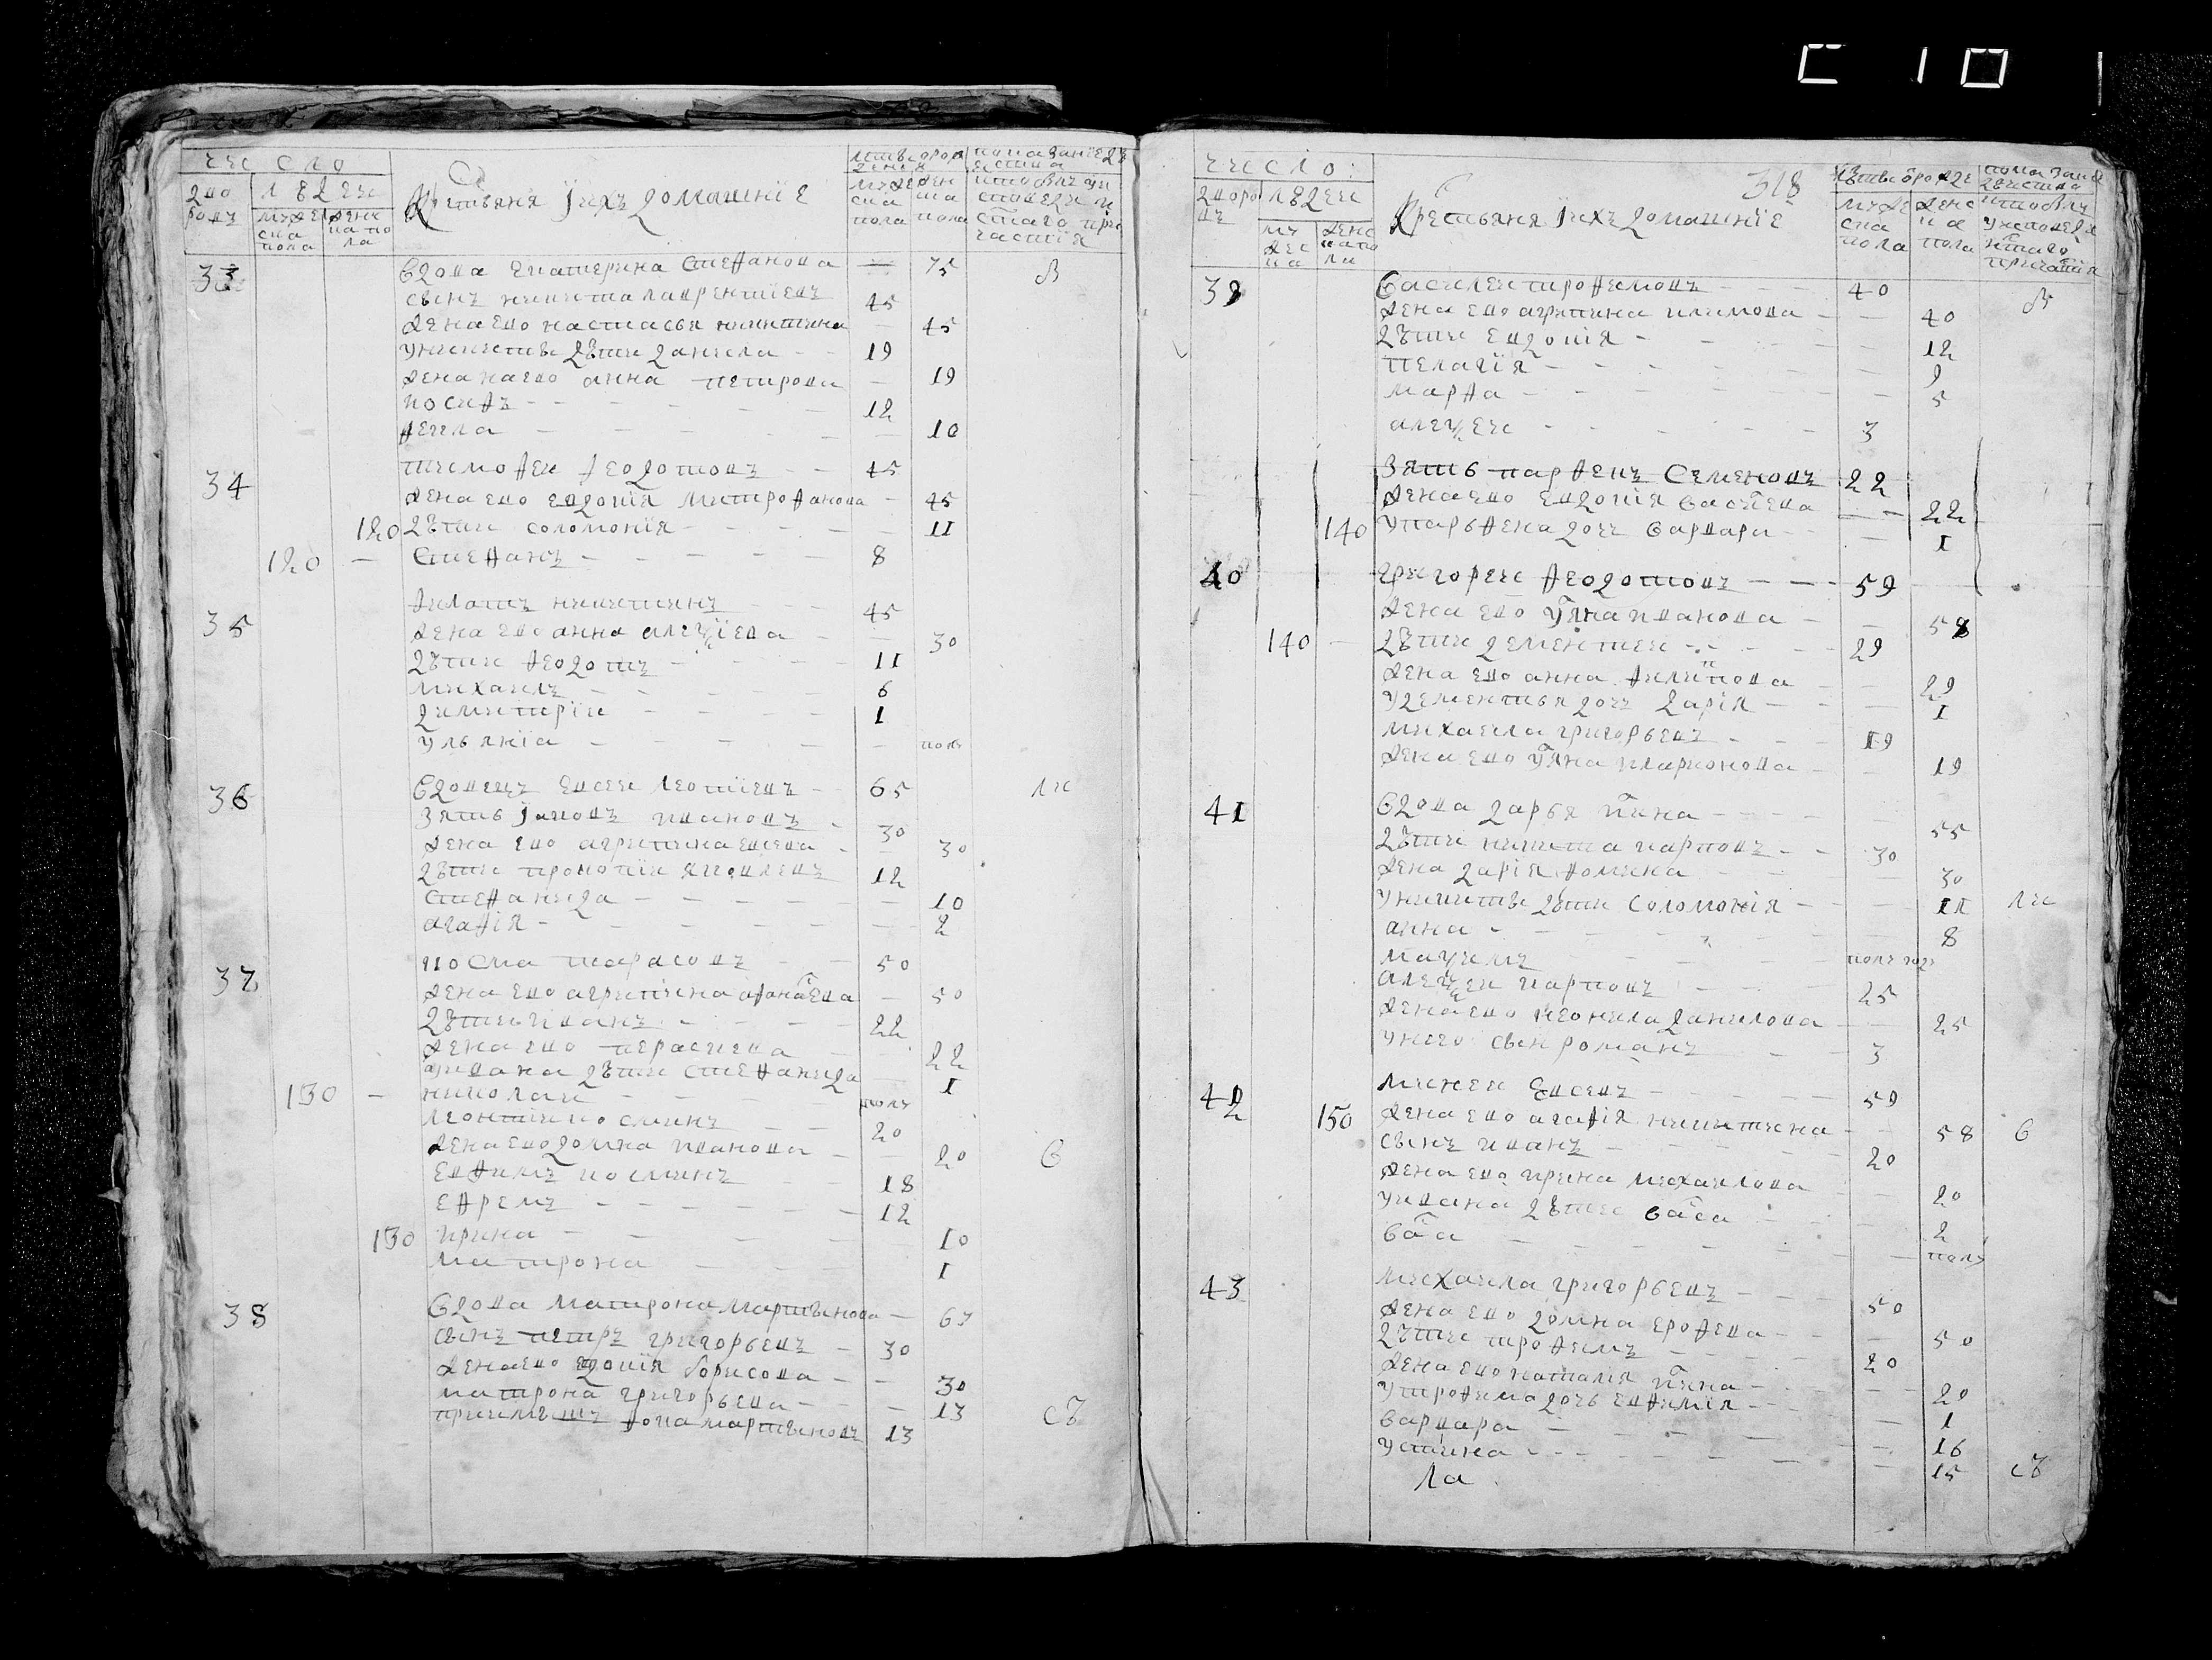 С 10
число
лѣта от рождения
дворовъ
людей
мужеска пола
женска пола
Крестьяня ихъ домашние
мужеска пола
женска пола
33 вдова екатерина стефанова — 75 в
сынъ никита лаврентиевъ 45
жена ево настасья никитина — 45
у никиты дѣти данила — 19
жена нaево анна петрова — 19
иосифъ 12
фекла 10
34 тимофеи федотовъ 45
жена ево евдокия митрофанова — 45
120 дѣти соломония — 11
120 — стефанъ 8
35 филатъ никитинъ 45
жена ево анна алеѯиева — 30
дѣти федотъ 11
михаилъ 6
димитрии 1
ульяния — полъ
36 вдовецъ евсеи леонтиевъ 65 ли
зять яковъ ивановъ 30
жена ево агрипина евсева — 30
дѣти прокопии яковлевъ 12
стефанида — 10
агафия — 2
37 косма тарасовъ 50
жена ево агрипина афонасева — 50
дѣти иванъ 22
жена ево параскева — 22
у ивана дѣти стефанида — 1
130 — николаи полъ
леонтии космин 20
жена ево домна иванова — 20 в
евфимъ косминъ 18
ефремъ 12
130 ирина — 10
матрона — 1
38 вдова матрона мартынова — 67
сынъ петръ григорьевъ 30
жена ево евдокия борисова — 30
матрона григорьева — 13 съ
приимышъ фока мартыновъ 13
318
число:
дворовъ
людей
мужеска
женска пола
Крестьяня ихъ домашние
мужеска пола
женска пола
39 василеи трофимовъ 40 в
жена ево агрипина климова — 40
дѣти евдокия — 12
пелагия — 9
марфа — 5
алеѯеи 3
зять парфенъ семеновъ 22
жена ево евдокия васильева — 22
140 у парфена дочь варвара — 1
40 григореи федотовъ 59
жена ево ульяна иванова — 58
140 — дѣти дементеи 29
жена ево анна филипова — 29
у дементья дочь дария — 1
михаила григорьевъ 19
жена ево ульяна иларионова — 19
41 вдова дарья — 55
дѣти никита карповъ 30
жена дария фомина — 30
у никиты дѣти соломония — 11 ли
анна — 8
маѯимъ полъ года
алеѯеи карповъ 25
жена ево неонила данилова — 25
у него сынъ романъ 3
42 минеи евсевъ 59
150 жена ево агафия никитина — 58 в
сынъ иванъ 20
жена ево ирина михаилова — 20
у ивана дѣти васа — 2
васа — полъ
43 михаила григорьевъ 50
жена ево домна ерофева — 50
дѣти трофимъ 20
жена ево наталия — 20
у трофима дочь евфимия — 1
варвара — 16
устина — 15 съ
ла